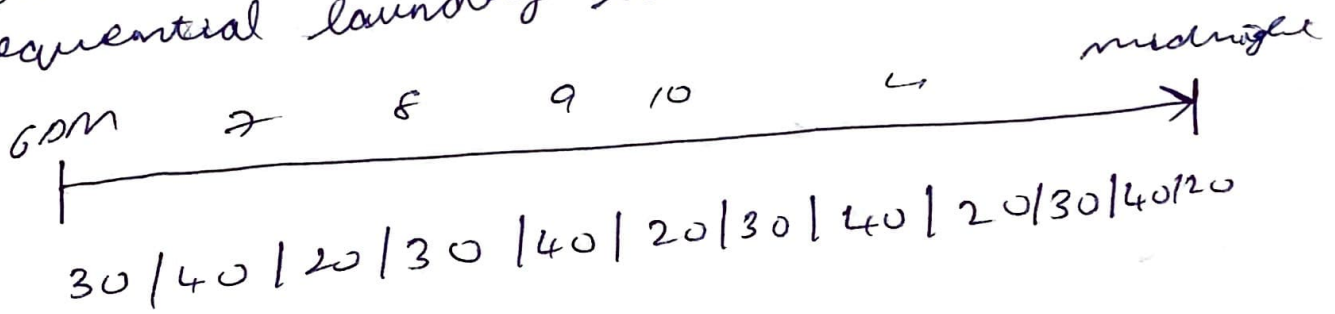 sequential laundry
6PM 7 8 9 10 midnight
30/40/20/30/40/20/30/40/20/30/40/20